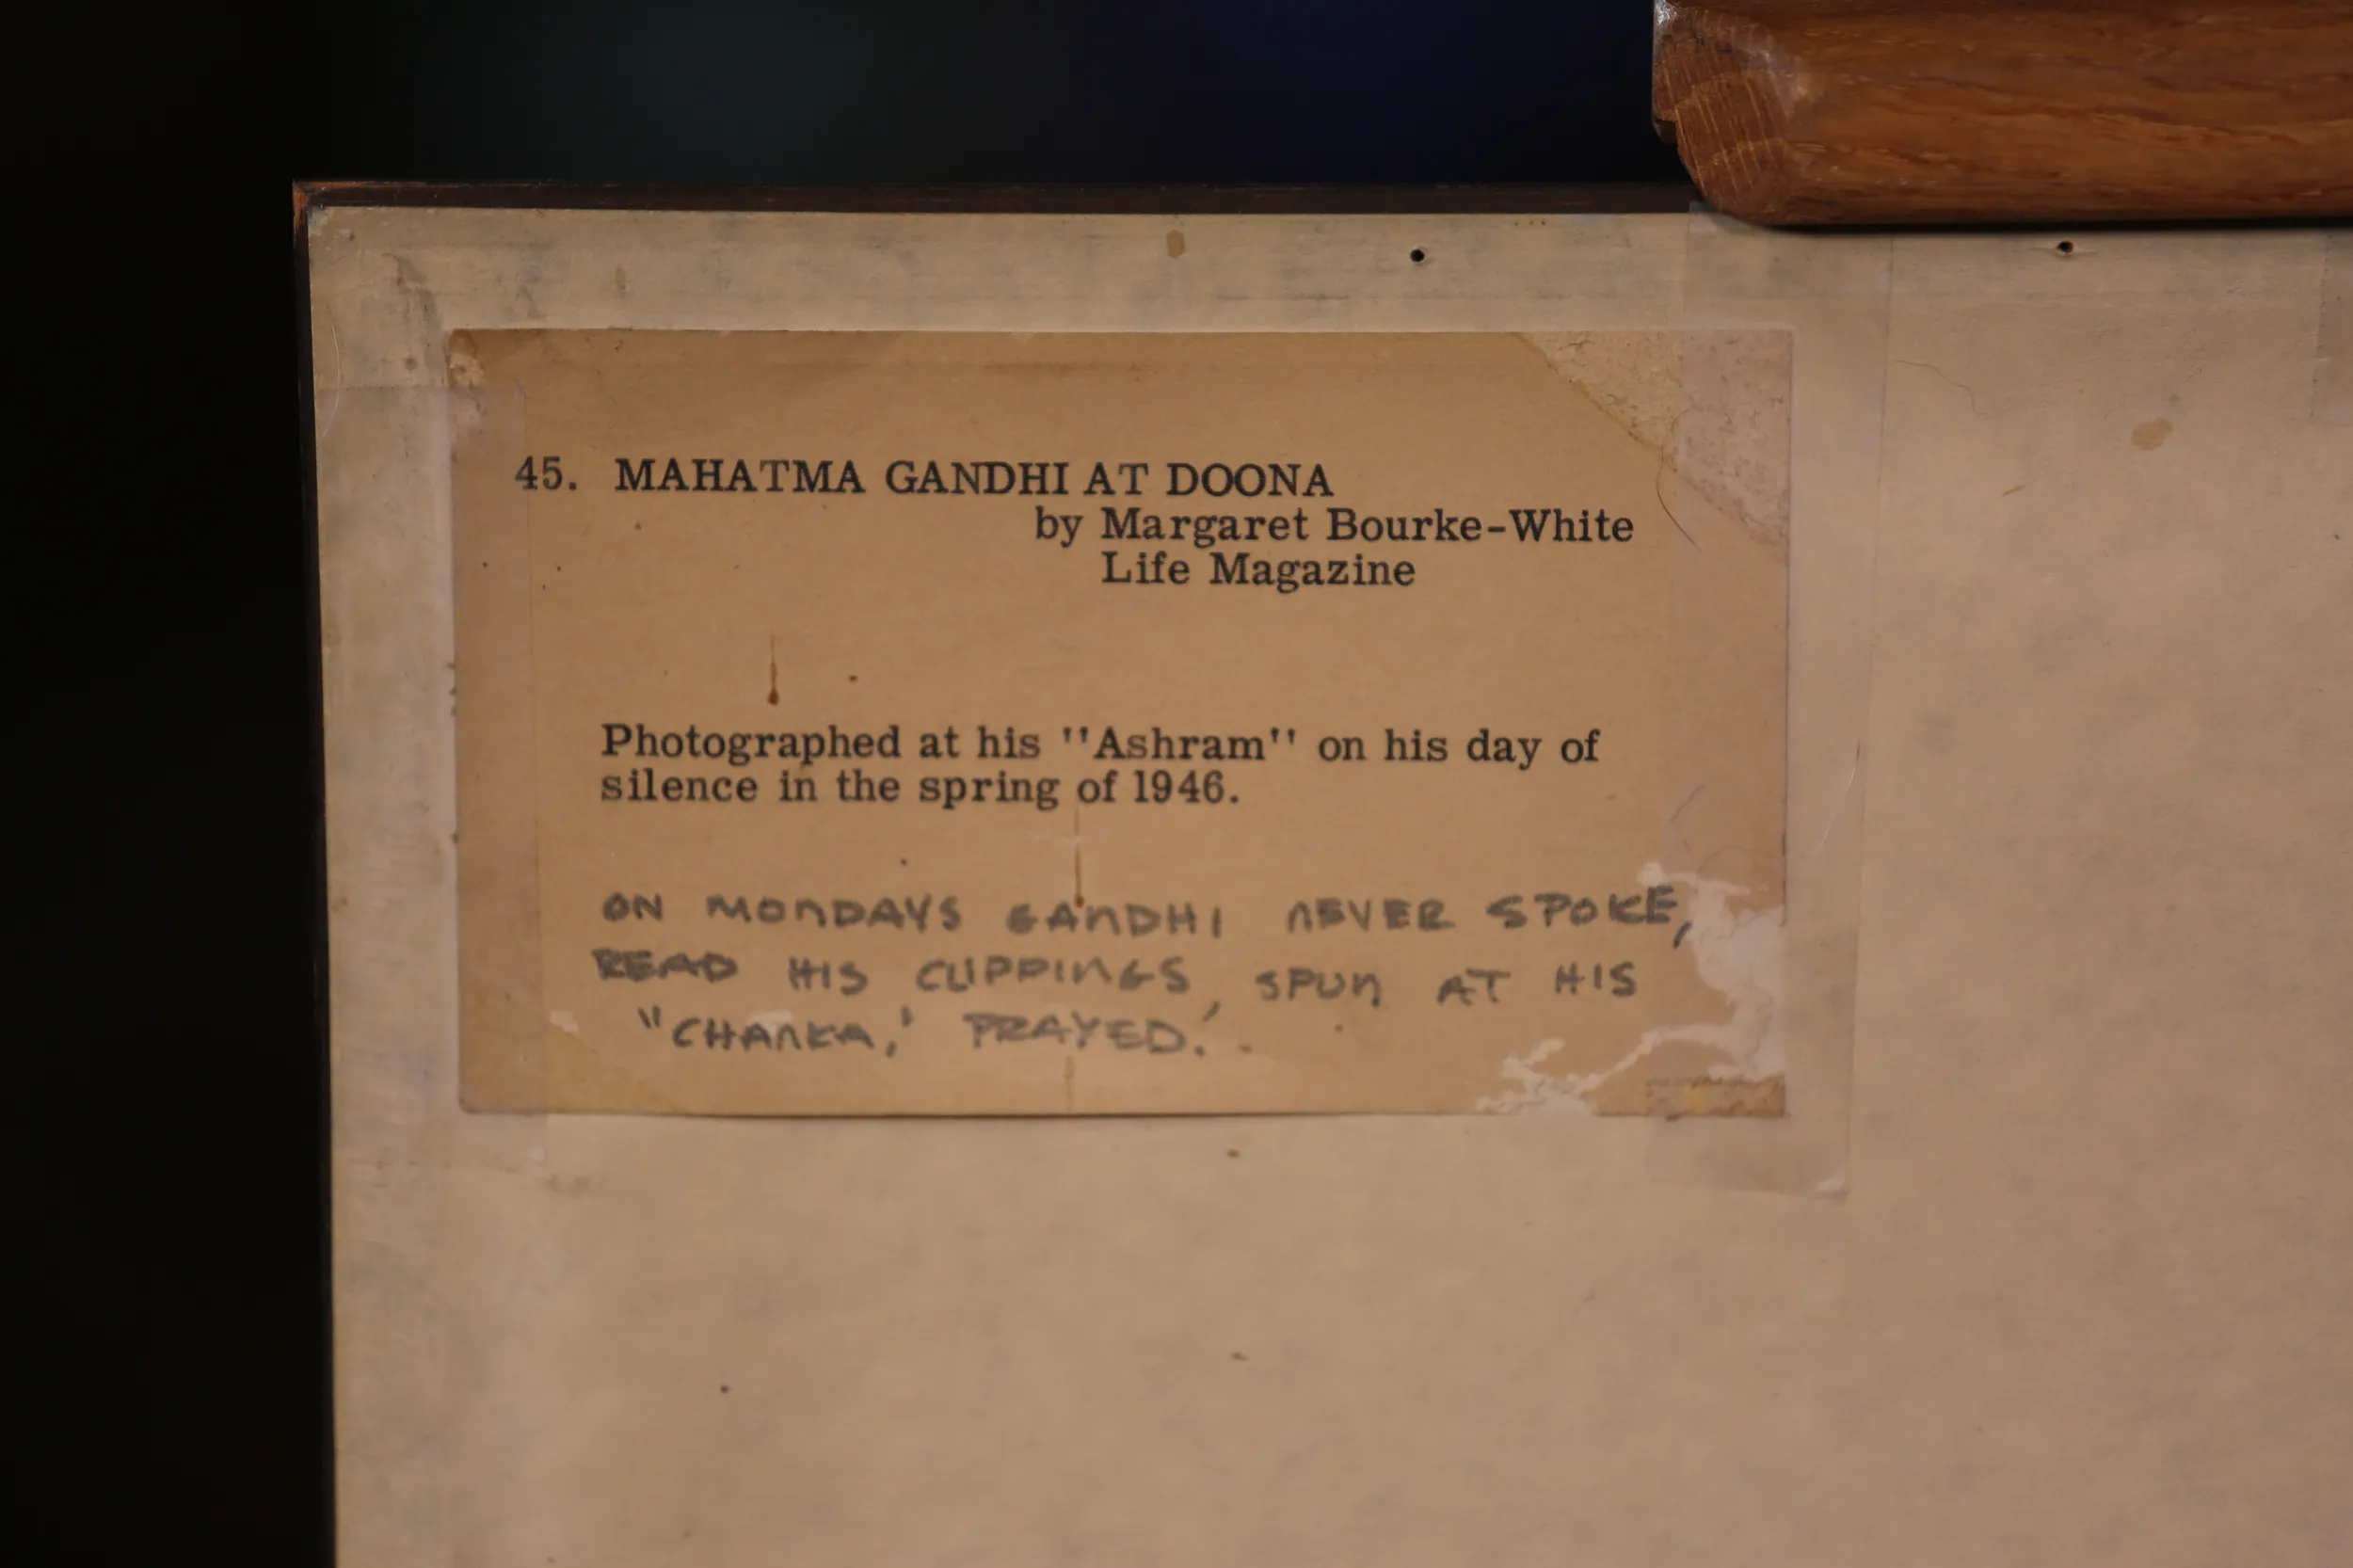 45. MAHATMA GANDHI AT DOONA
by Margaret Bourke-White
Life Magazine
Photographed at his "Ashram" on his day of
silence in the spring of 1946.
ON MONDAYS GANDHI NEVER SPOKE,
READ HIS CLIPPINGS, SPUN AT HIS
"CHANKA," PRAYED.